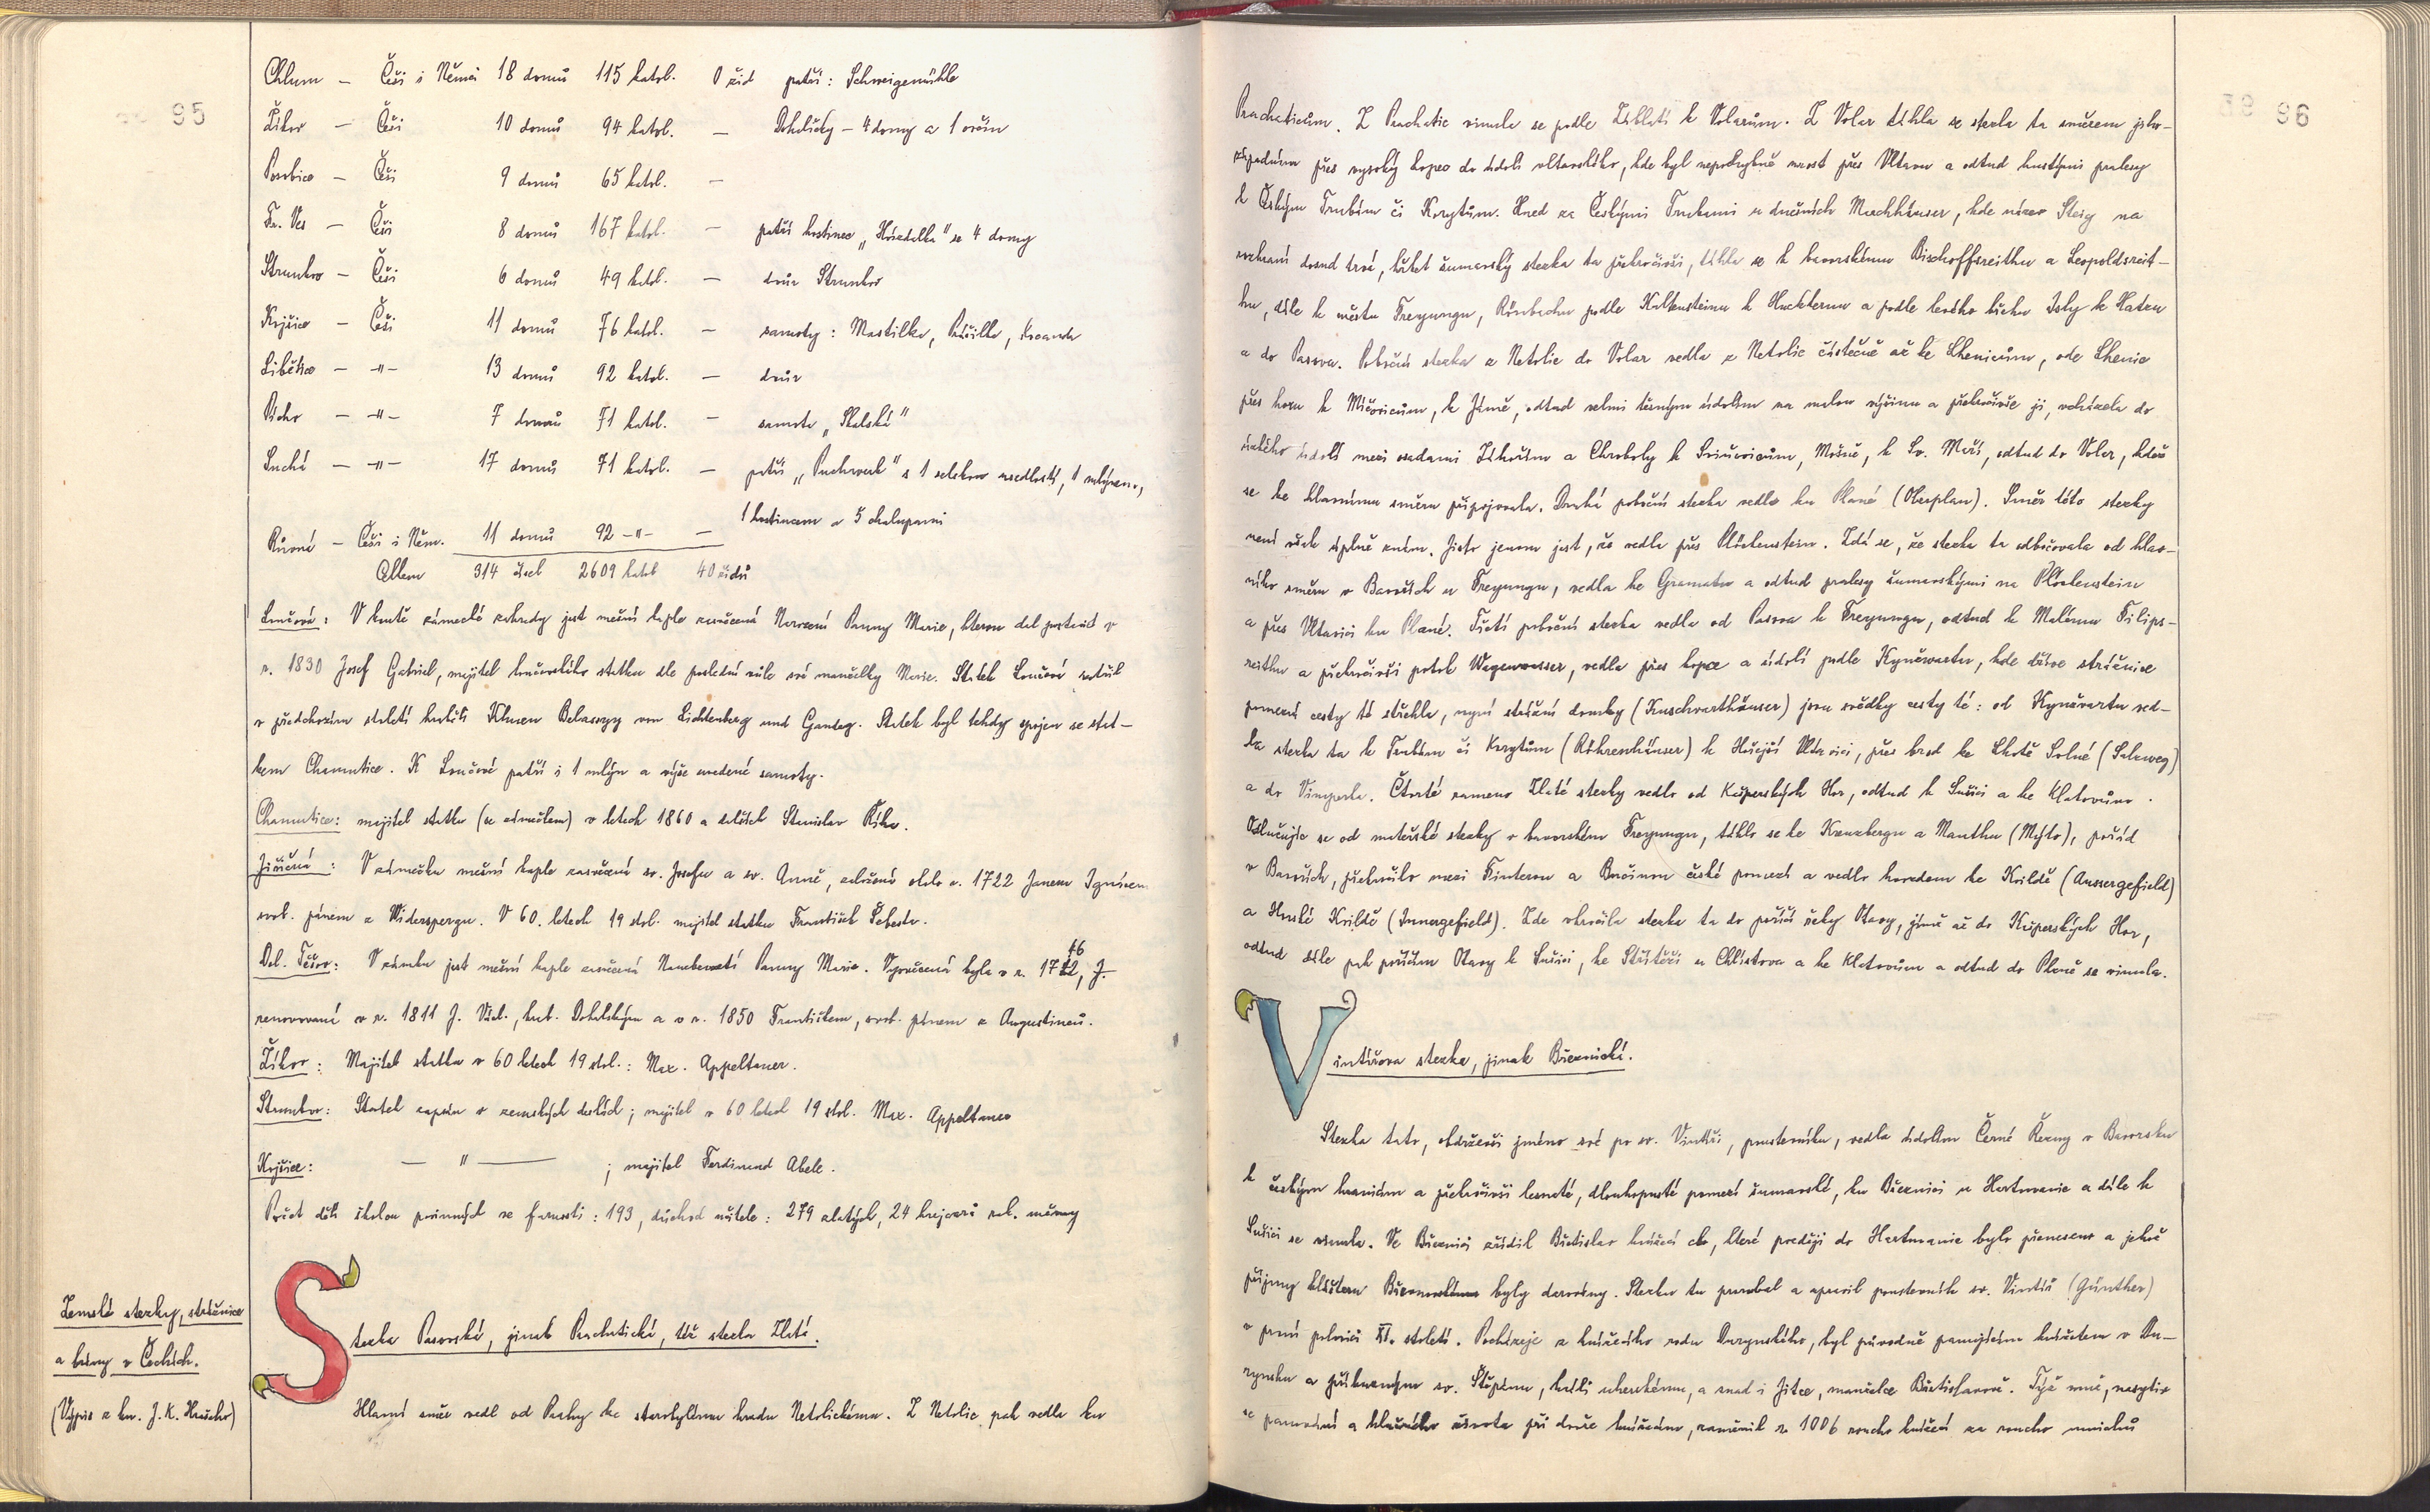 95
Chlum — Češi i Němci 18 domů 115 katol. 1 žid patří: Schweigemühle
Žikov — Češi 10 domů 94 katol. — Doholičky – 4 domy a 1 ovčín
Posobice — Češi 9 domů 65 katol. —
Fr. Ves — Češi 8 domů 167 katol. — patří hostinec „Hvízdalka" se 4 domy
Strunkov — Češi 6 domů 49 katol. — dvůr Strunkov
Kojšice — Češi 11 domů 76 katol. — samoty: Mastilka, Pučilka,
Libětice — -"- 13 domů 92 katol. — dvůr
Puchov — -"- 7 domů 71 katol. — samota „Skalská"
Suchá — -"- 17 domů 71 katol. — patří „Puchwerk" s 1 selskou usedlostí, 1 mlýnem,
1 hostincem a 5 chalupami
Rovná — Češi i Něm. 11 domů 92 -"- —
Cellem 314 čísel 2609 katol 40 židů
Loučová: V koutě zámecké zahrady jest mešní kaple zasvěcená Narození Panny Marie, kterou dal postavit v
r. 1830 Josef Gabriel, majitel loučovského statku dle poslední vůle své manželky Marie. Statek Loučová
v předchozím století hraběti Klmen Belassyy von Lichtenberg und Gandeg. Statek byl tehdy spojen se stat-
kem Chamutice. K Loučové patří i 1 mlýn a výše uvedené samoty.
Chamutice: majitel statku (se zámečkem) v letech 1860 a dalších Stanislav Říha.
Jiřičná: V zámečku mešní kaple zasvěcená sv. Josefu a sv. Anně, založená okolo r. 1722 Janem Ignácem
svob. pánem z Widerspergu. V 60. letech 19 stol. majitel statku František Šebesta.
Dol. Těšov: V zámku jest mešní kaple zasvěcená Nanebevzetí Panny Marie. Vysvěcená byla v r. 1762, J.
renovovaná v r. 1811 J. Václ., hrab. Dohalským a v r. 1850 Františkem, svob. pánem z Augustineů.
Žikov: Majitel statku v 60 letech 19 stol.: Max. Appeltauer.
Strunkov: Statek zapsán v zemských deskách; majitel v 60 letech 19 stol. Max. Appeltauer
Kojšice: — " — ; majitel Ferdinand Abele.
Počet dětí školou povinných ve farnosti: 193, důchod učitele: 279 zlatých, 24 krejcarů rak. měny
Zemské stezky, strážnice
a brány v Čechách.
(Výpis z kn. J. K. Hraše)
Stezka Pasovská, jinak Prachatická, též stezka Zlatá.
Hlavní směr vedl od Prahy ke starobylému hradu Netolickému. Z Netolic pak vedla ku
96
Prachaticům. Z Prachatic vinula se podle Záblatí k Volarům. Z Volar táhla se stezka ta směrem jiho-
západním přes vysoký kopec do údolí vltavského, kde byl nepochybně most přes Vltavu a odtud hustými pralesy
k Českým Trubám či Korytům. Hned za Českými Trubami u dnešních Marchhäuser, kde název Steig na
rozhraní dosud trvá, hřbet šumavský stezka ta překročivši, táhla se k bavorskému Bischoffsreithu a Leopoldsreit-
hu, dále k městu Freyungu, Röhrbachu podle Kalkensteinu k Huckternu a podle levého břehu Ilsy k Hatzu
a do Pasova. Poboční stezka z Netolic do Volar vedla z Netolic částečně až ke Lhenicům, ode Lhenic
přes horu k Mičovicům, k Jámě, odtud velmi těsným údolím na malou výšinu a překročivše ji, vcházela do
úzkého údolí mezi osadami Záhořím a Chroboly k Sviňovicům, Mošně, k Sv. Máří, odtud do Volar, kdež
se ke hlavnímu směru připojovala. Druhá poboční stezka vedla ku Plané (Oberplan). Směr této stezky
není však úplně znám. Jisto jenom jest, že vedla přes Plöckenstein. Zdá se, že stezka ta odbočovala od hlav-
ního směru v Bavořích u Freyungu, vedla ke Gramatu a odtud pralesy šumavskými na Plöckenstein
a přes Vltavici ku Plané. Třetí poboční stezka vedla od Pasova k Freyungu, odtud k Malému Filips-
reithu a překročivši potok Wagenwasser, vedla přes kopce a údolí podle Kynžvartu, kde dříve strážnice
pomezní cesty té střehla, nyní strážní domky (Kuschwarthäuser) jsou svědky cesty té: od Kynžvartu ved-
la stezka ta k Trubám či Korytům (Röhrenhäuser) k Hořejší Vltavici, přes brod ke Lhotě Solné (Salzweg)
a do Vimperka. Čtvrté rameno Zlaté stezky vedlo od Kašperských Hor, odtud k Sušici a ke Klatovům.
Odlučujíc se od mateřské stezky v bavorském Freyungu, táhlo se ke Kreuzbergu a Mauthu (Mýto), pořád
v Bavořích, překročilo mezi Finterou a Bučinou české pomezí a vedlo hvozdem ke Kvildě (Aussergefield)
a Horské Kvildě (Innergefield). Zde vkročila stezka ta do poříčí řeky Otavy, jímž až do Kašperských Hor,
odtud dále pak poříčím Otavy k Sušici, ke Strážči u Chlístova a ke Klatovům a odtud do Plzně se vinula.
Vintířova stezka, jinak Březnická.
Stezka tato, obdrževši jméno své po sv. Vintíři, poustevníku, vedla údolím Černé Řezny v Bavorsku
k českým hranicím a překročivši lesnaté, dlouhopusté pomezí šumavské, ku Březnici u Hartmanic a dále k
Sušici se vinula. Ve Březnici zřídil Břetislav knížecí clo, které později do Hartmanic bylo přeneseno a jehož
příjmy klášteru Břevnovskému byly darovány. Stezku tu prorubal a upravil poustevník sv. Vintíř (Günther)
v první polovici XI. století. Pocházeje z knížecího rodu Durynského, byl původně panujícím knížetem v Du-
rynsku a příbuzným sv. Štěpánu, králi uherskému, a snad i Jitce, manželce Břetislavově. Týž muž, nasytiv
se panování a hlučného života při dvoře knížecím, zaměnil r. 1006 roucho knížecí za roucho mnichů